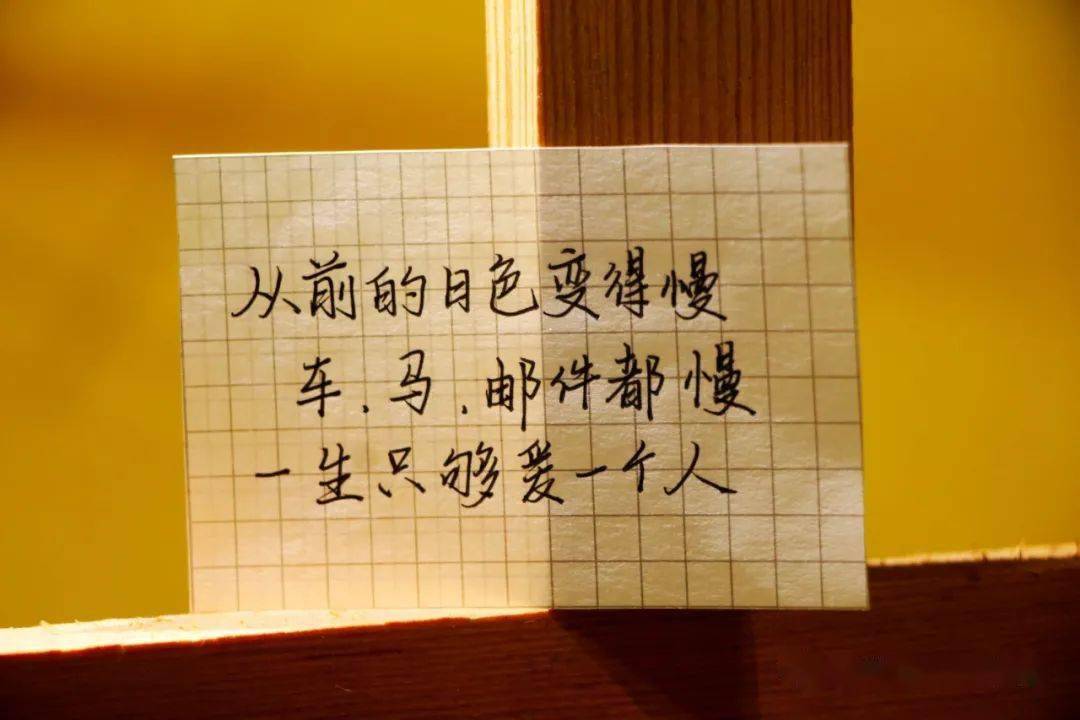 从前的日色变得慢
车.马.邮件都慢
一生只够爱一个人